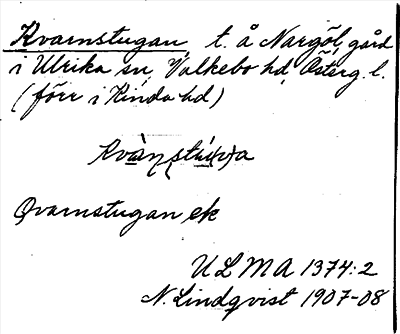 Kvarnstugan t. å Nargöl, gård
i Ulrika sn, Valkebo hd, Österg. l.
(förr i Kinda hd)
Qvarnstugan ek
ULMA 1374:2
N. Lindqvist 1907-08